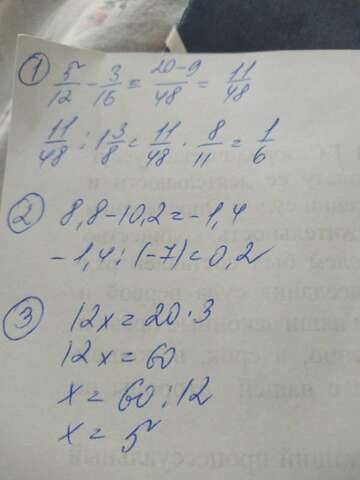 1
5/12 - 3/16 = 20-9/48 = 11/48
11/48 : 1 3/8 = 11/48 · 8/11 = 1/6
2
8,8-10,2=-1,4
-1,4:(-7)=0,2
3
12x=20·3
12x=60
x=60:12
x=5